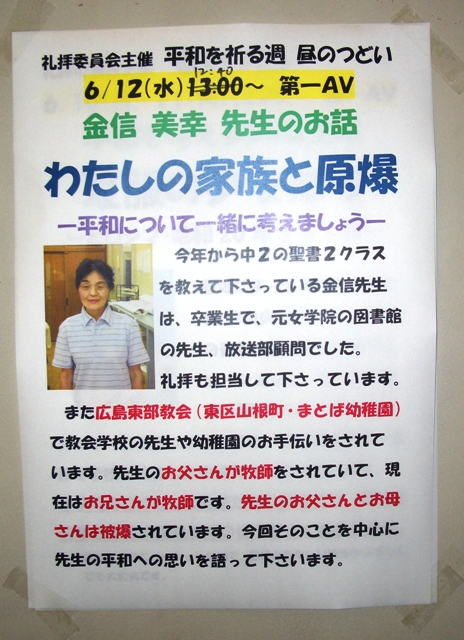 礼拝委員会主催 平和を祈る週 昼のつどい
12:40
6/12(水)13:00～ 第一AV
金信 美幸 先生のお話
わたしの家族と原爆
ー平和について一緒に考えましょうー
今年から中2の聖書2クラス
を教えて下さっている金信先生
は、卒業生で、元女学院の図書館
の先生、放送部顧問でした。
礼拝も担当して下さっています。
また広島東部教会(東区山根町・まとば幼稚園)
で教会学校の先生や幼稚園のお手伝いをされて
います。先生のお父さんが牧師をされていて、現
在はお兄さんが牧師です。先生のお父さんとお母
さんは被爆されています。今回そのことを中心に
先生の平和への思いを語って下さいます。